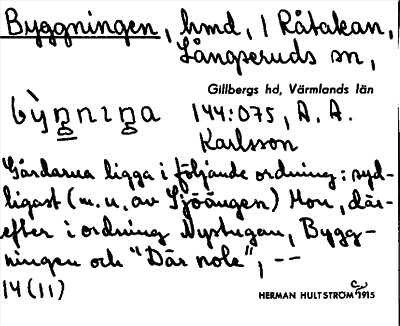 Byggningen, hmd, i Råtakan,
Långseruds sn,
Gillbergs hd, Värmlands län
bỳŋnıŋa 144:075, A. A.
Karlsson
Gårdarna ligga i följande ordning: syd-
ligast (m. u. av Sjöängen) Hon, där-
efter i ordning Nystugan, Bygg-
ningen och "Där nole", --
14(11)
HERMAN HULTSTRÖM 1915